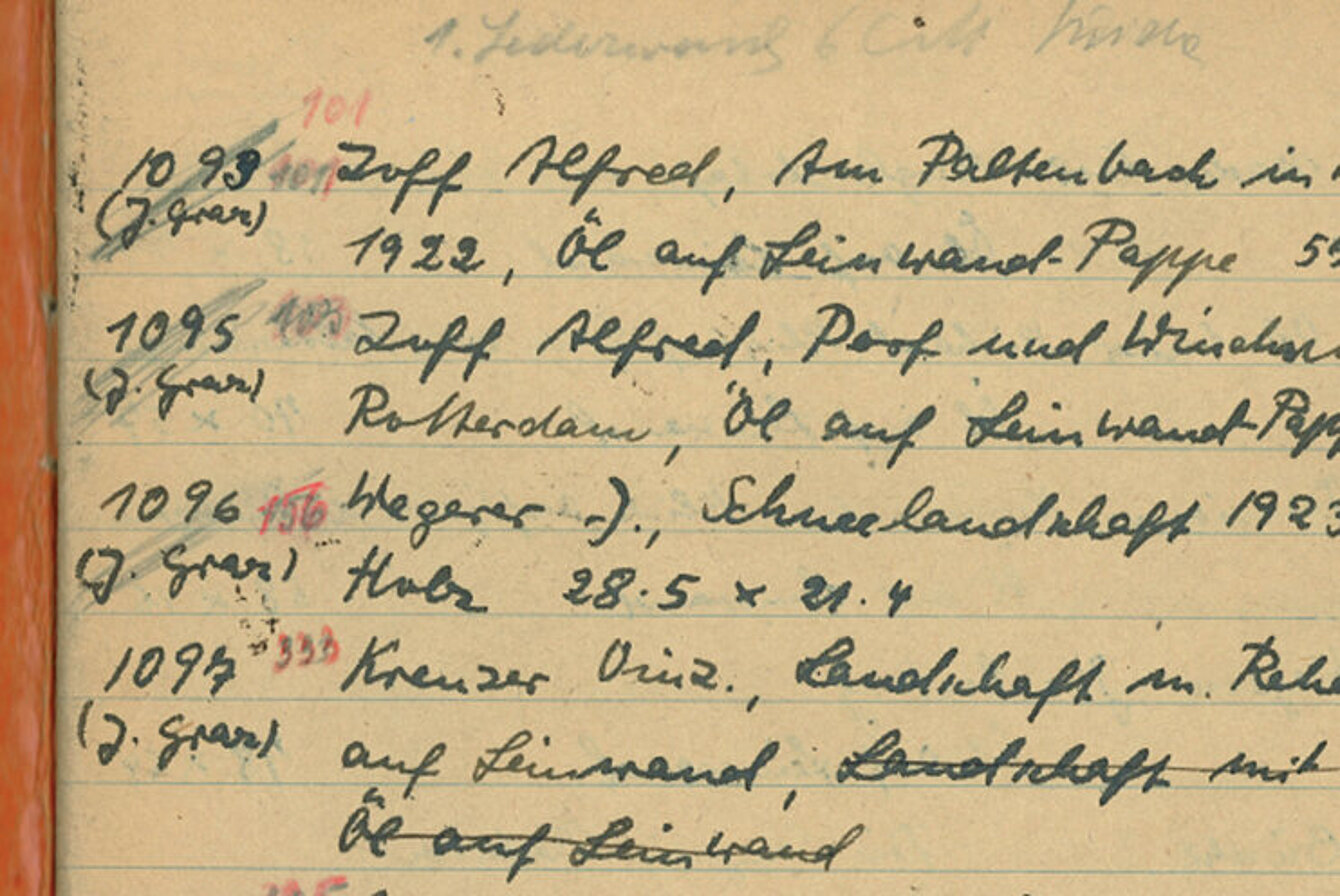 101
1093 101 Zoff Alfred, Am Paltenbach in
(J. Graz) 1922, Öl auf Leinwand-Pappe 53
1095 103 Zoff Alfred, Dorf und
(J. Graz) Rotterdam, Öl auf Leinwand-Papp
1096 156 Wegerer J., Schneelandschaft 1923
(J. Graz) Holz 28.5 x 21.4
1097 333 Kreuzer Vinz., Landschaft m. Rehe
(J. Graz) auf Leinwand, Landschaft mit
Öl auf Leinwand